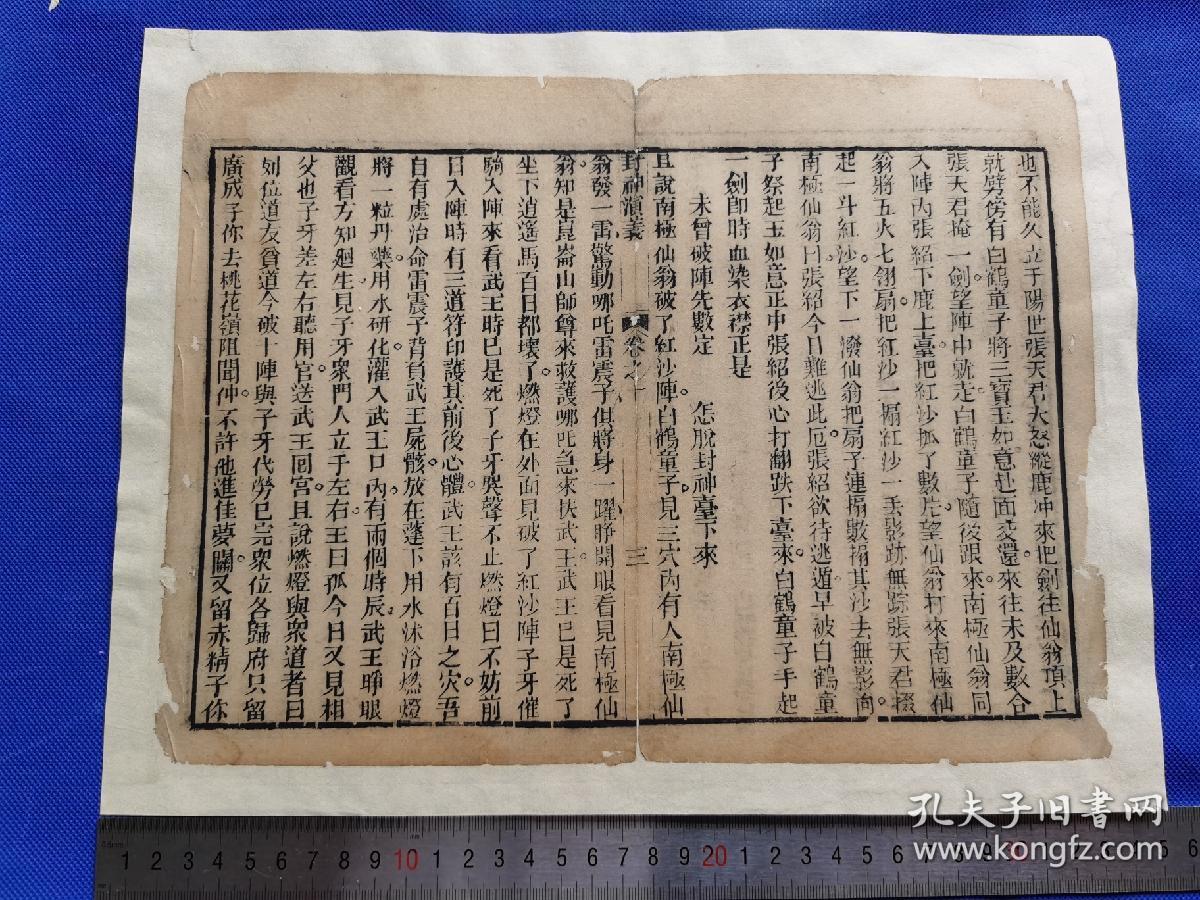 也不能久立于陽世張天君大怒縱鹿冲來把劍往仙翁頂上
就劈傍有白鶴童子將三寶玉如意赴面交還來往未及數合
張天君掩一劍望陣中就走白鶴童子隨後跟來南極仙翁同
入陣內張紹下鹿上臺把紅沙抓了數片望仙翁打來南極仙
翁將五火七翎扇把紅沙一搧紅沙一丢影跡無踪張天君掇
起一斗紅沙望下一潑仙翁把扇子連搧數搧其沙去無影向
南極仙翁曰張紹今日難逃此厄張紹欲待逃遁早被白鶴童
子祭起玉如意正中張紹後心打翻跌下臺來白鶴童子手起
一劍卽時血染衣襟正是
未曾破陣先數定 怎脫封神臺下來
且說南極仙翁破了紅沙陣白鶴童子見三穴內有人南極仙
封神演義 卷之十 三
翁發一雷驚動哪吒雷震子俱將身一躍睜開眼看見南極仙
翁知是崑崙山師尊來救護哪吒急來扶武王武王已是死了
坐下逍遙馬百日都壞了燃燈在外面見破了紅沙陣子牙催
騎入陣來看武王時已是死了子牙哭聲不止燃燈曰不妨前
日入陣時有三道符印護其前後心體武王該有百日之灾吾
自有處治命雷震子背負武王屍骸放在蓬下用水沐浴燃燈
將一粒丹藥用水研化灌入武王口內有兩個時辰武王睜眼
觀看方知廻生見子牙衆門人立于左右王曰孤今日又見相
父也子牙差左右聽用官送武王囘宮且說燃燈與衆道者曰
列位道友貧道今破十陣與子牙代勞已完衆位各歸府只留
廣成子你去桃花嶺阻聞仲不許他進佳夢關又留赤精子你
孔夫子旧书网
www.kongfz.com
1 1 2 3 4 5 6 7 8 9 10 1 2 3 4 5 6 7 8 9 20 1 2 3 4 5 6 7 8 9 30 1 2 3 4 5 6